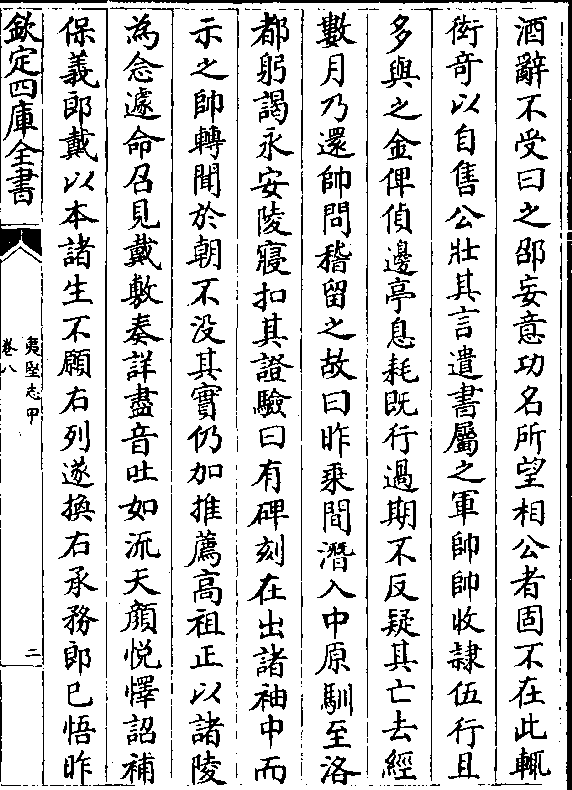 酒辭不受曰之邵妄意功名所望相公者固不在此輒
衒竒以自售公壯其言遣書屬之軍帥帥收隷伍行且
多與之金俾偵邊亭息耗既行過期不反疑其亡去經
數月乃還帥問稽留之故曰昨乘間潛入中原馴至洛
都躬謁永安陵寢扣其證驗曰有碑刻在出諸袖中而
示之帥轉聞於朝不没其實仍加推薦高祖正以諸陵
為念遽命召見戴敷奏詳盡音吐如流天顔悦懌詔補
保義郎戴以本諸生不願右列遂換右承務郎已悟昨
欽定四庫全書
夷堅志甲
卷八
二